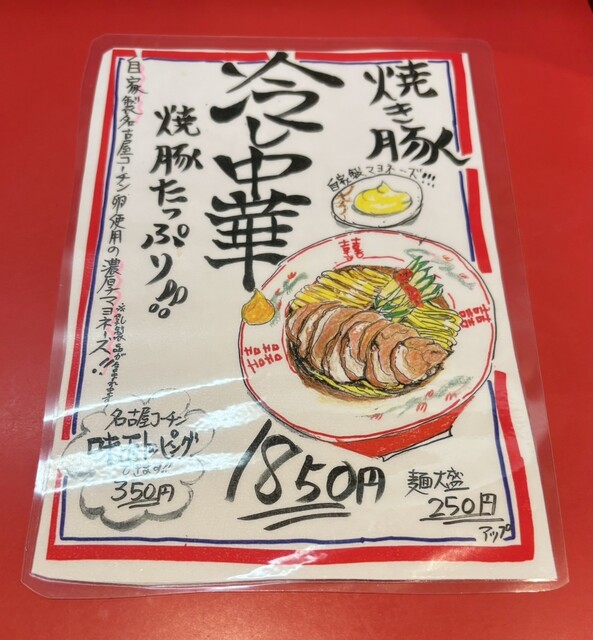 焼き豚
冷し中華
焼豚たっぷり!!!
自家製マヨネーズ!!!
自家製名古屋コーチン卵使用の濃厚マヨネーズ!!
囍
1850円
麺大盛
250円
アップ
名古屋コーチン
味玉トッピング
します!!
350円